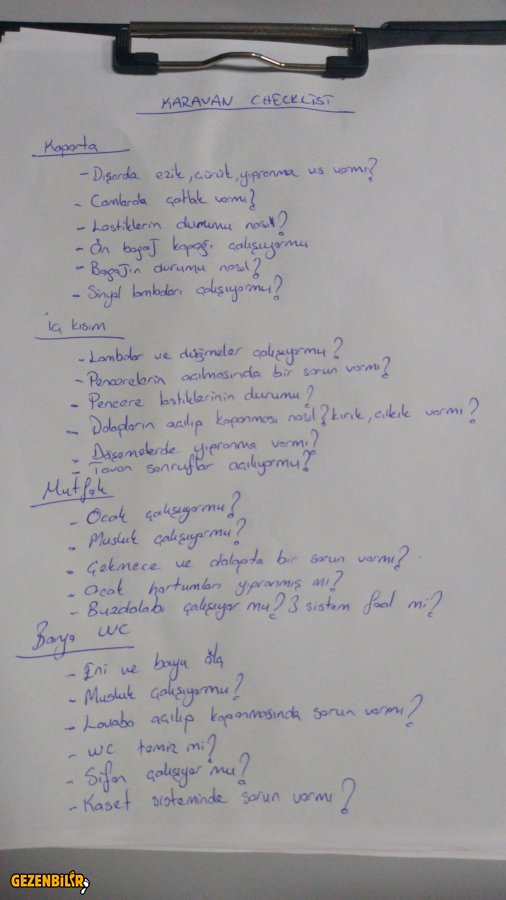 KARAVAN CHECKLIST
Kaporta
- Dışarda ezik, çürük, yıpranma vs varmı?
- Camlarda çatlak varmı?
- Lastiklerin durumu nasıl?
- Ön bagaj kapağı çalışıyormu
- Bagajın durumu nasıl?
- Sinyal lambaları çalışıyormu?
İç kısım
- Lambalar ve düğmeler çalışıyormu?
- Pencerelerin açılmasında bir sorun varmı?
- Pencere lastiklerinin durumu?
- Dolapların açılıp kapanması nasıl? kırık, çıkık varmı?
- Döşemelerde yıpranma varmı?
- Tavan sanruflar açılıyormu?
Mutfak
- Ocak çalışıyormu?
- Musluk çalışıyormu?
- Çekmece ve dolapta bir sorun varmı?
- Ocak hortumları yıpranmış mı?
- Buzdolabı çalışıyor mu? 3 sistem faal mi?
Banyo WC
- Eni ve boyu ölç
- Musluk çalışıyormu?
- Lavabo açılıp kapanmasında sorun varmı?
- WC temiz mi?
- Sifon çalışıyor mu?
- Kaset sisteminde sorun varmı?
GEZENBİLİR